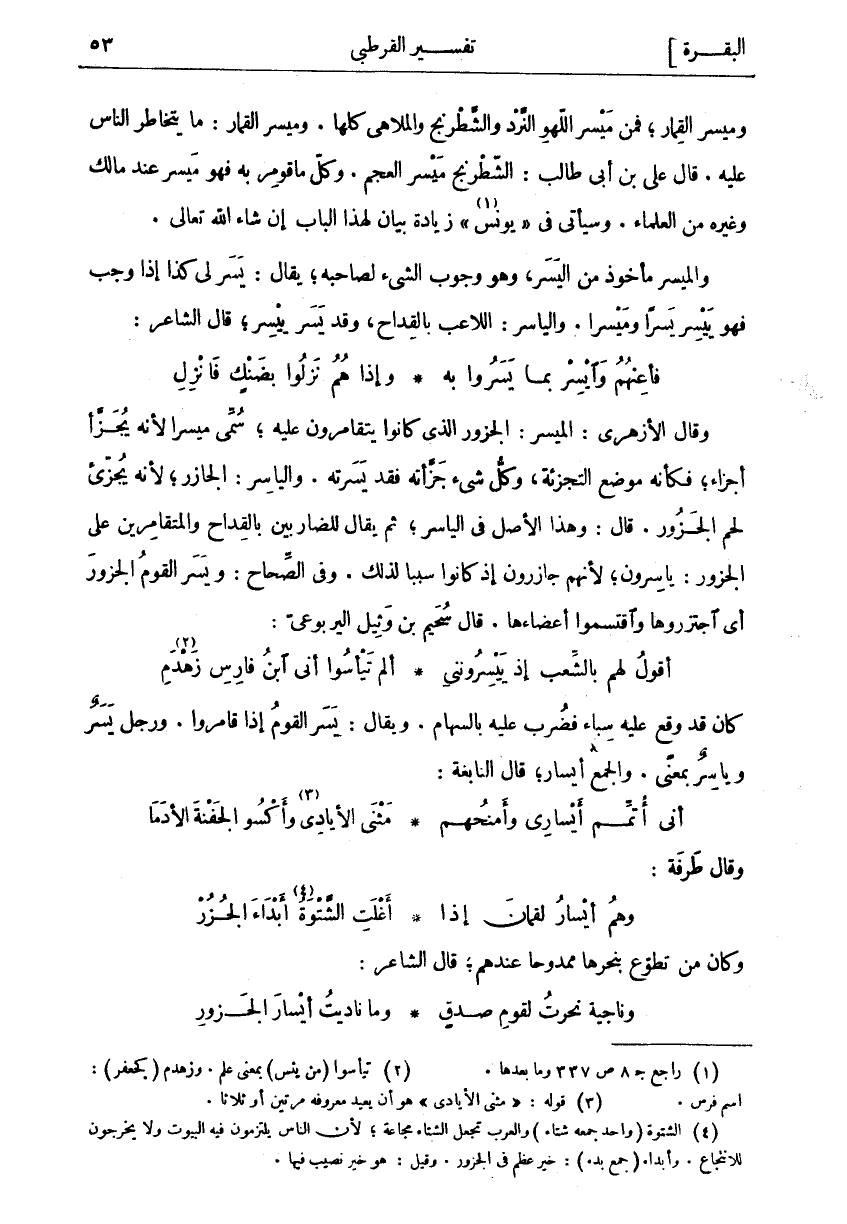 البقرة ] تفسير القرطبى ٥٣
وميسر القِمار ؛ فمن مَيْسر اللّهوِ النَّرْد والشَّطْرنج والملاهى كلها . وميسر القمار : ما يتخاطر الناس
عليه . قال على بن أبى طالب : الشِّطْرنج مَيْسر العجم . وكلّ ماقومِر به فهو مَيسر عند مالك
وغيره من العلماء . وسيأتى فى « يونس (١) » زيادة بيان لهذا الباب إن شاء الله تعالى .
والميسر مأخوذ من اليَسَر، وهو وجوب الشىء لصاحبه؛ يقال : يَسَر لى كذا إذا وجب
فهو يَيْسِر يَسرًا ومَيْسرا . والياسر : اللاعب بالقِداح، وقد يَسَر ييْسِر؛ قال الشاعر :
فأعِنْهُمُ وَٱيْسِرْ بمـا يَسَرُوا به * وإذا هُمُ نَزلُوا بضَنْكٍ فَانْزِلِ
وقال الأزهرى : الميسر : الجزور الذى كانوا يتقامرون عليه ؛ سُمِّى ميسرا لأنه يُجَـزَّأ
أجزاء؛ فكأنه موضع التجزئة، وكلُّ شىء جَزَّأته فقد يَسَرته . والياسِر : الجازر؛ لأنه يُجزّئ
لحم الجَـزُور . قال : وهذا الأصل فى الياسر؛ ثم يقال للضاربين بالقِداح والمتقامِرين على
الجزور : ياسِرون؛ لأنهم جازرون إذ كانوا سببا لذلك . وفى الصِّحاح : ويَسَر القومُ الجزورَ
أى ٱجتزروها وٱقتسموا أعضاءها . قال سُحَيم بن وَثِيل اليربوعىّ :
أقولُ لهم بالشِّعب إذ يَيْسِرُوننى * ألم تَيْأسُوا أنى ٱبنُ فارِس زَهْدَمِ (٢)
كان قد وقع عليه سِباء فضُرب عليه بالسهام . ويقال : يَسَر القومُ إذا قامروا . ورجل يَسَرٌ
وياسِرٌ بمعنًى . والجمع أيسار؛ قال النابغة :
أنى أُتَمِّـم أَيْسارِى وأَمنحُهـم * مَثْنَى الأيادِى (٣) وأَكْسُو الجَفْنةَ الأدَمَا
وقال طَرَفة :
وهمُ أيْسارُ لقمانَ إذا * أَغْلَتِ الشَّتوَةُ (٤) أَبْدَاءَ الجُـزُرْ
وكان من تطوّع بنحرها ممدوحا عندهم؛ قال الشاعر :
وناجية نحرتُ لقومِ صـدقٍ * وما ناديتُ أيْسارَ الجَـزورِ
(١) راجع جـ ٨ ص ٣٣٧ وما بعدها . (٢) تيأسوا (من يئس) بمعنى علم . وزهدم (كجعفر) :
اسم فرس . (٣) قوله : « مثنى الأيادى » هو أن يعيد معروفه مرتين أو ثلاثا .
(٤) الشتوة (واحد جمعه شتاء) والعرب تجعل الشتاء مجاعة ؛ لأن الناس يلتزمون فيه البيوت ولا يخرجون
للانتجاع . وأبداء (جمع بدء) : خير عظم فى الجزور . وقيل : هو خير نصيب فيها .